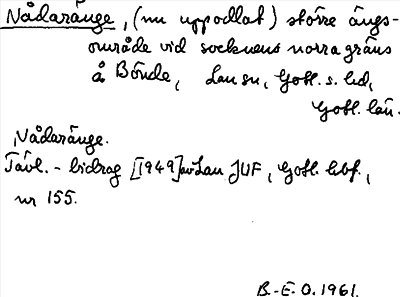 Nådaränge, (nu uppodlat) större ängs-
område vid socknens norra gräns
å Bönde, Lau sn, Gotl. s. hd,
Gotl. län.
Nådaränge.
Tävl.-bidrag [1949] av Lau JUF, Gotl. hbf.,
nr 155.
B.-E.O. 1961.